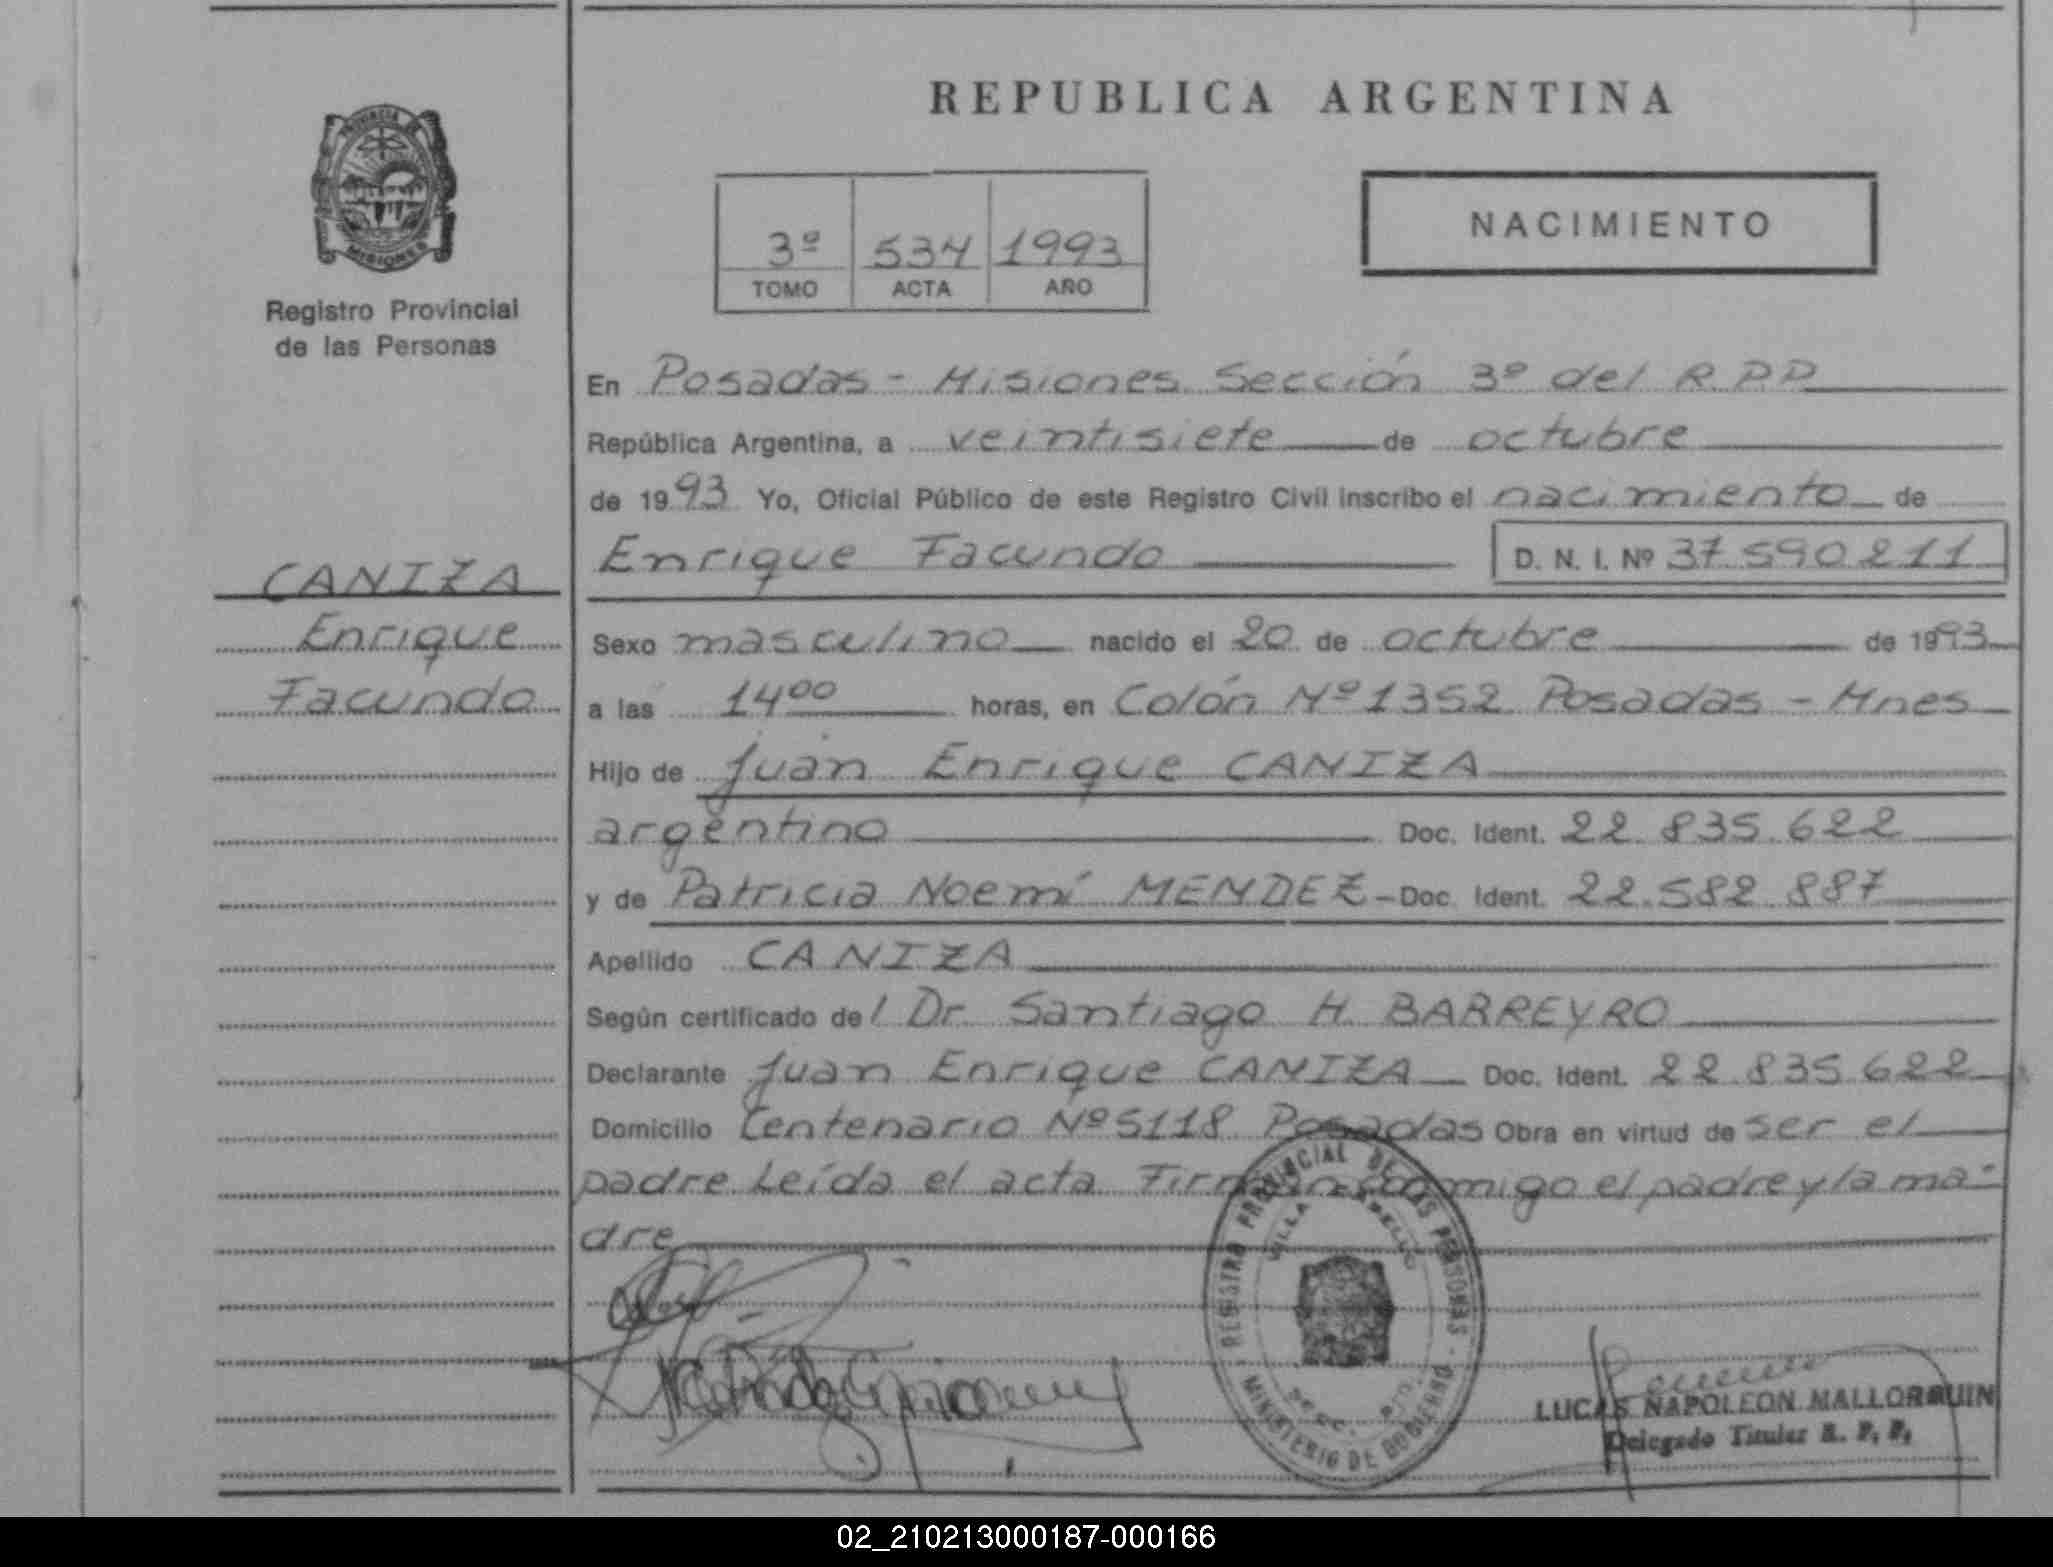 REPUBLICA ARGENTINA
PROVINCIA DE
MISIONES
Registro Provincial
de las Personas
3º 534 1993
TOMO ACTA AÑO
NACIMIENTO
En Posadas - Misiones Sección 3º del R.P.P.
República Argentina, a veintisiete de octubre
de 1993 Yo, Oficial Público de este Registro Civil inscribo el nacimiento de
Enrique Facundo D. N. I. Nº 37.590.211
CANIZA
Enrique
Facundo
Sexo masculino nacido el 20 de octubre de 1993
a las 14 00 horas, en Colón Nº 1352 Posadas - Mnes
Hijo de Juan Enrique CANIZA
argentino Doc. Ident. 22.835.622
y de Patricia Noemí MENDEZ - Doc. Ident. 22.582.887
Apellido CANIZA
Según certificado del Dr. Santiago H. BARREYRO
Declarante Juan Enrique CANIZA Doc. Ident. 22.835.622
Domicilio Centenario Nº 5118 Posadas Obra en virtud de ser el
padre Leída el acta Firman conmigo el padre y la ma-
dre
REGISTRO PROVINCIAL DE LAS PERSONAS - MINISTERIO DE GOBIERNO
VILLA
LUCAS NAPOLEON MALLORQUIN
Delegado Titular R. P. P.
02_210213000187-000166